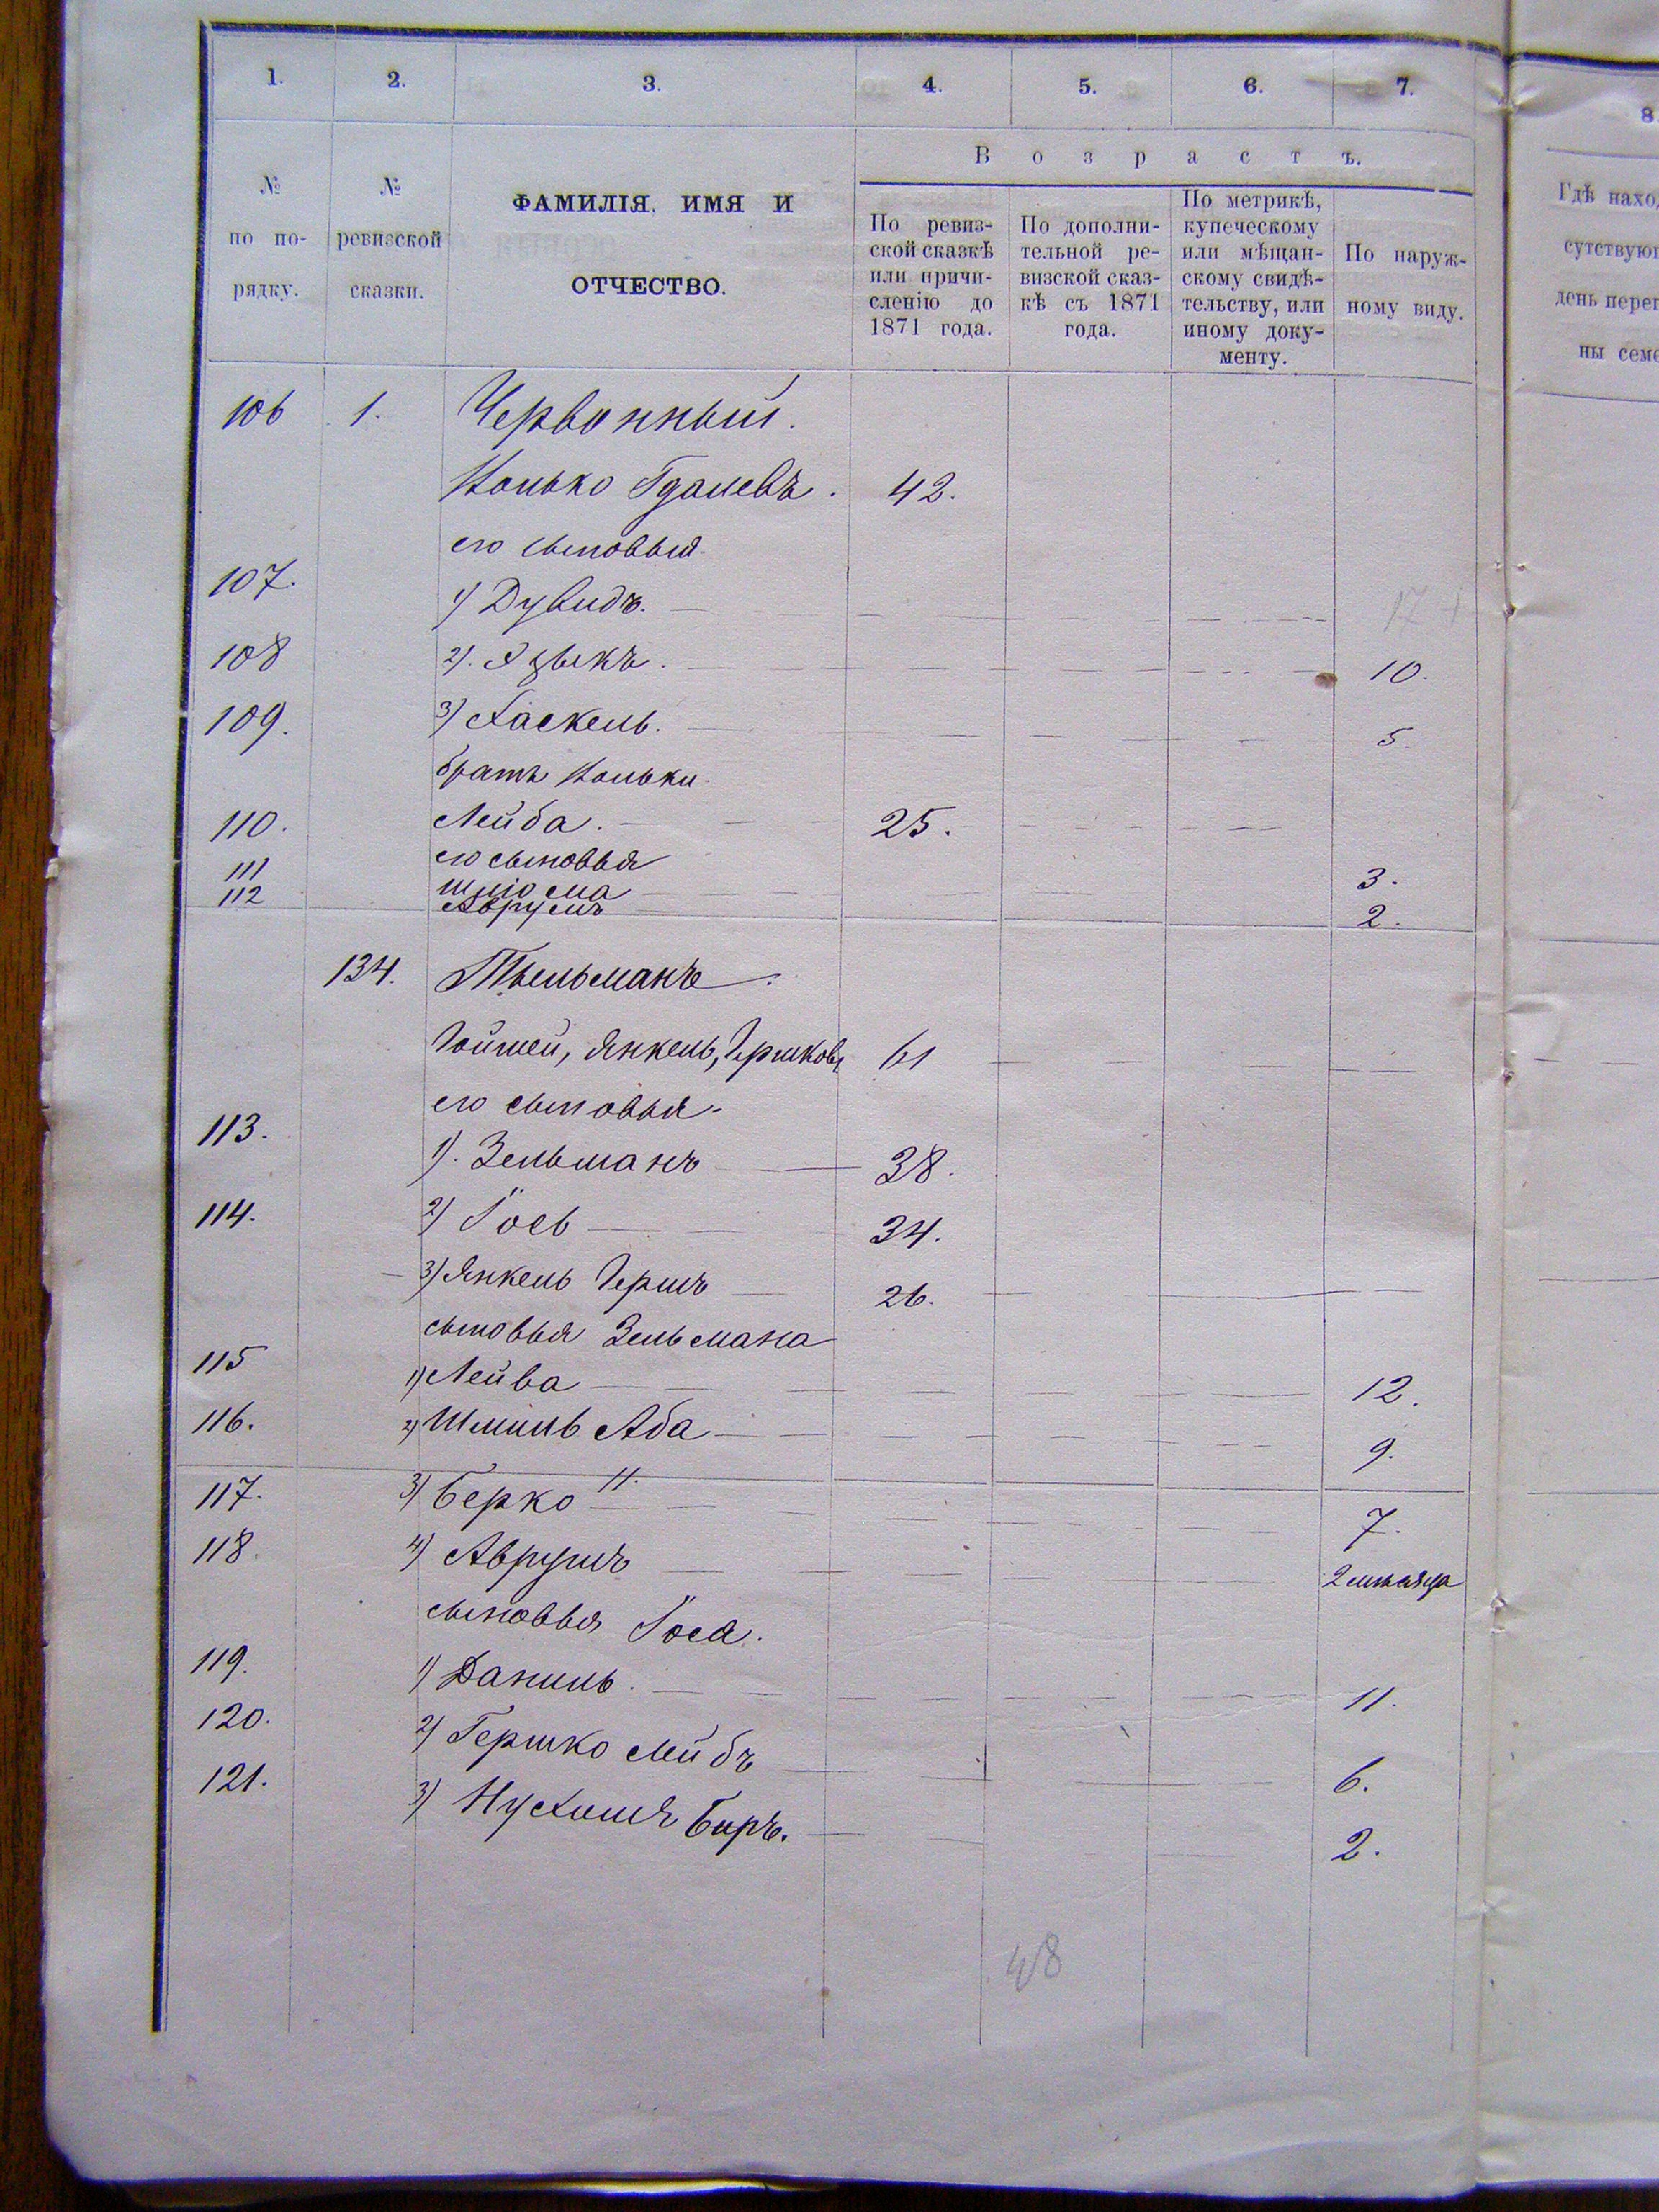 1. 2. 3. 4. 5. 6. 7.
8
№ по порядку.
№ ревизской сказки.
ФАМИЛІЯ, ИМЯ И ОТЧЕСТВО.
Возрастъ.
По ревиз-
ской сказкѣ
или причи-
сленію до
1871 года.
По дополни-
тельной ре-
визской сказ-
кѣ съ 1871
года.
По метрикѣ,
купеческому
или мѣщан-
скому свидѣ-
тельству, или
иному доку-
менту.
По наруж-
ному виду.
Гдѣ
ны
106 1. Червонный.
Гдалевъ. 42.
его сыновья
107. 1) Дувидъ. 17
108 2). Азыкъ. 10.
109. 3) Хаскель. 5.
братъ
110. Лейба. 25.
его сыновья
111 Шліома 3.
112 Аврумъ 2.
134. Тѣльманъ.
Мойшей, Янкель, Гершковъ 61
его сыновья
113. 1). Зельманъ 38.
114. 2) Іось 34.
3) Янкель Гершъ 26.
сыновья Зельмана
115 1) Лейба 12.
116. 2) Шмиль Аба 9.
117. 3) Берко 7.
118. 4) Аврумъ 2 мѣсяца
сыновья Іося.
119. 1) Даниль. 11.
120. 2) Гершко Лейбъ 6.
121. 3) Нухимъ Беръ. 2.
48